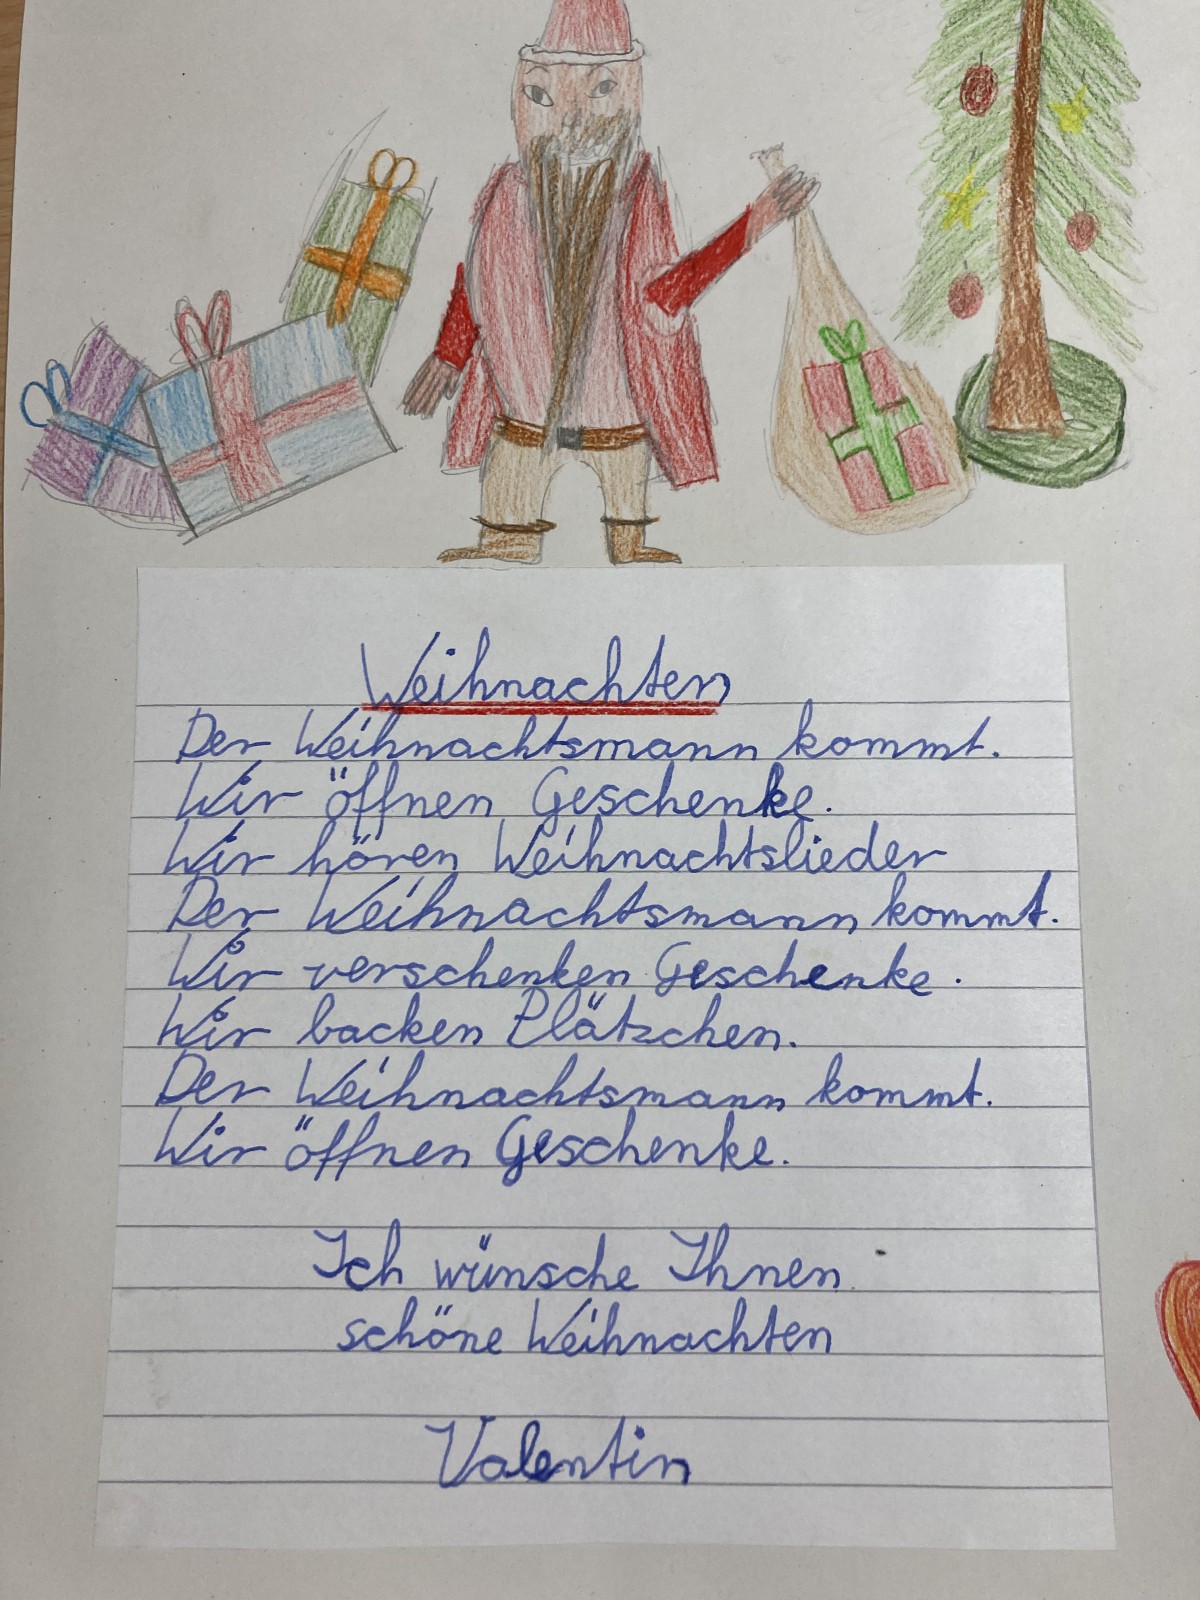 Weihnachten
Der Weihnachtsmann kommt.
Wir öffnen Geschenke.
Wir hören Weihnachtslieder
Der Weihnachtsmann kommt.
Wir verschenken Geschenke.
Wir backen Plätzchen.
Der Weihnachtsmann kommt.
Wir öffnen Geschenke.
Ich wünsche Ihnen
schöne Weihnachten
Valentin